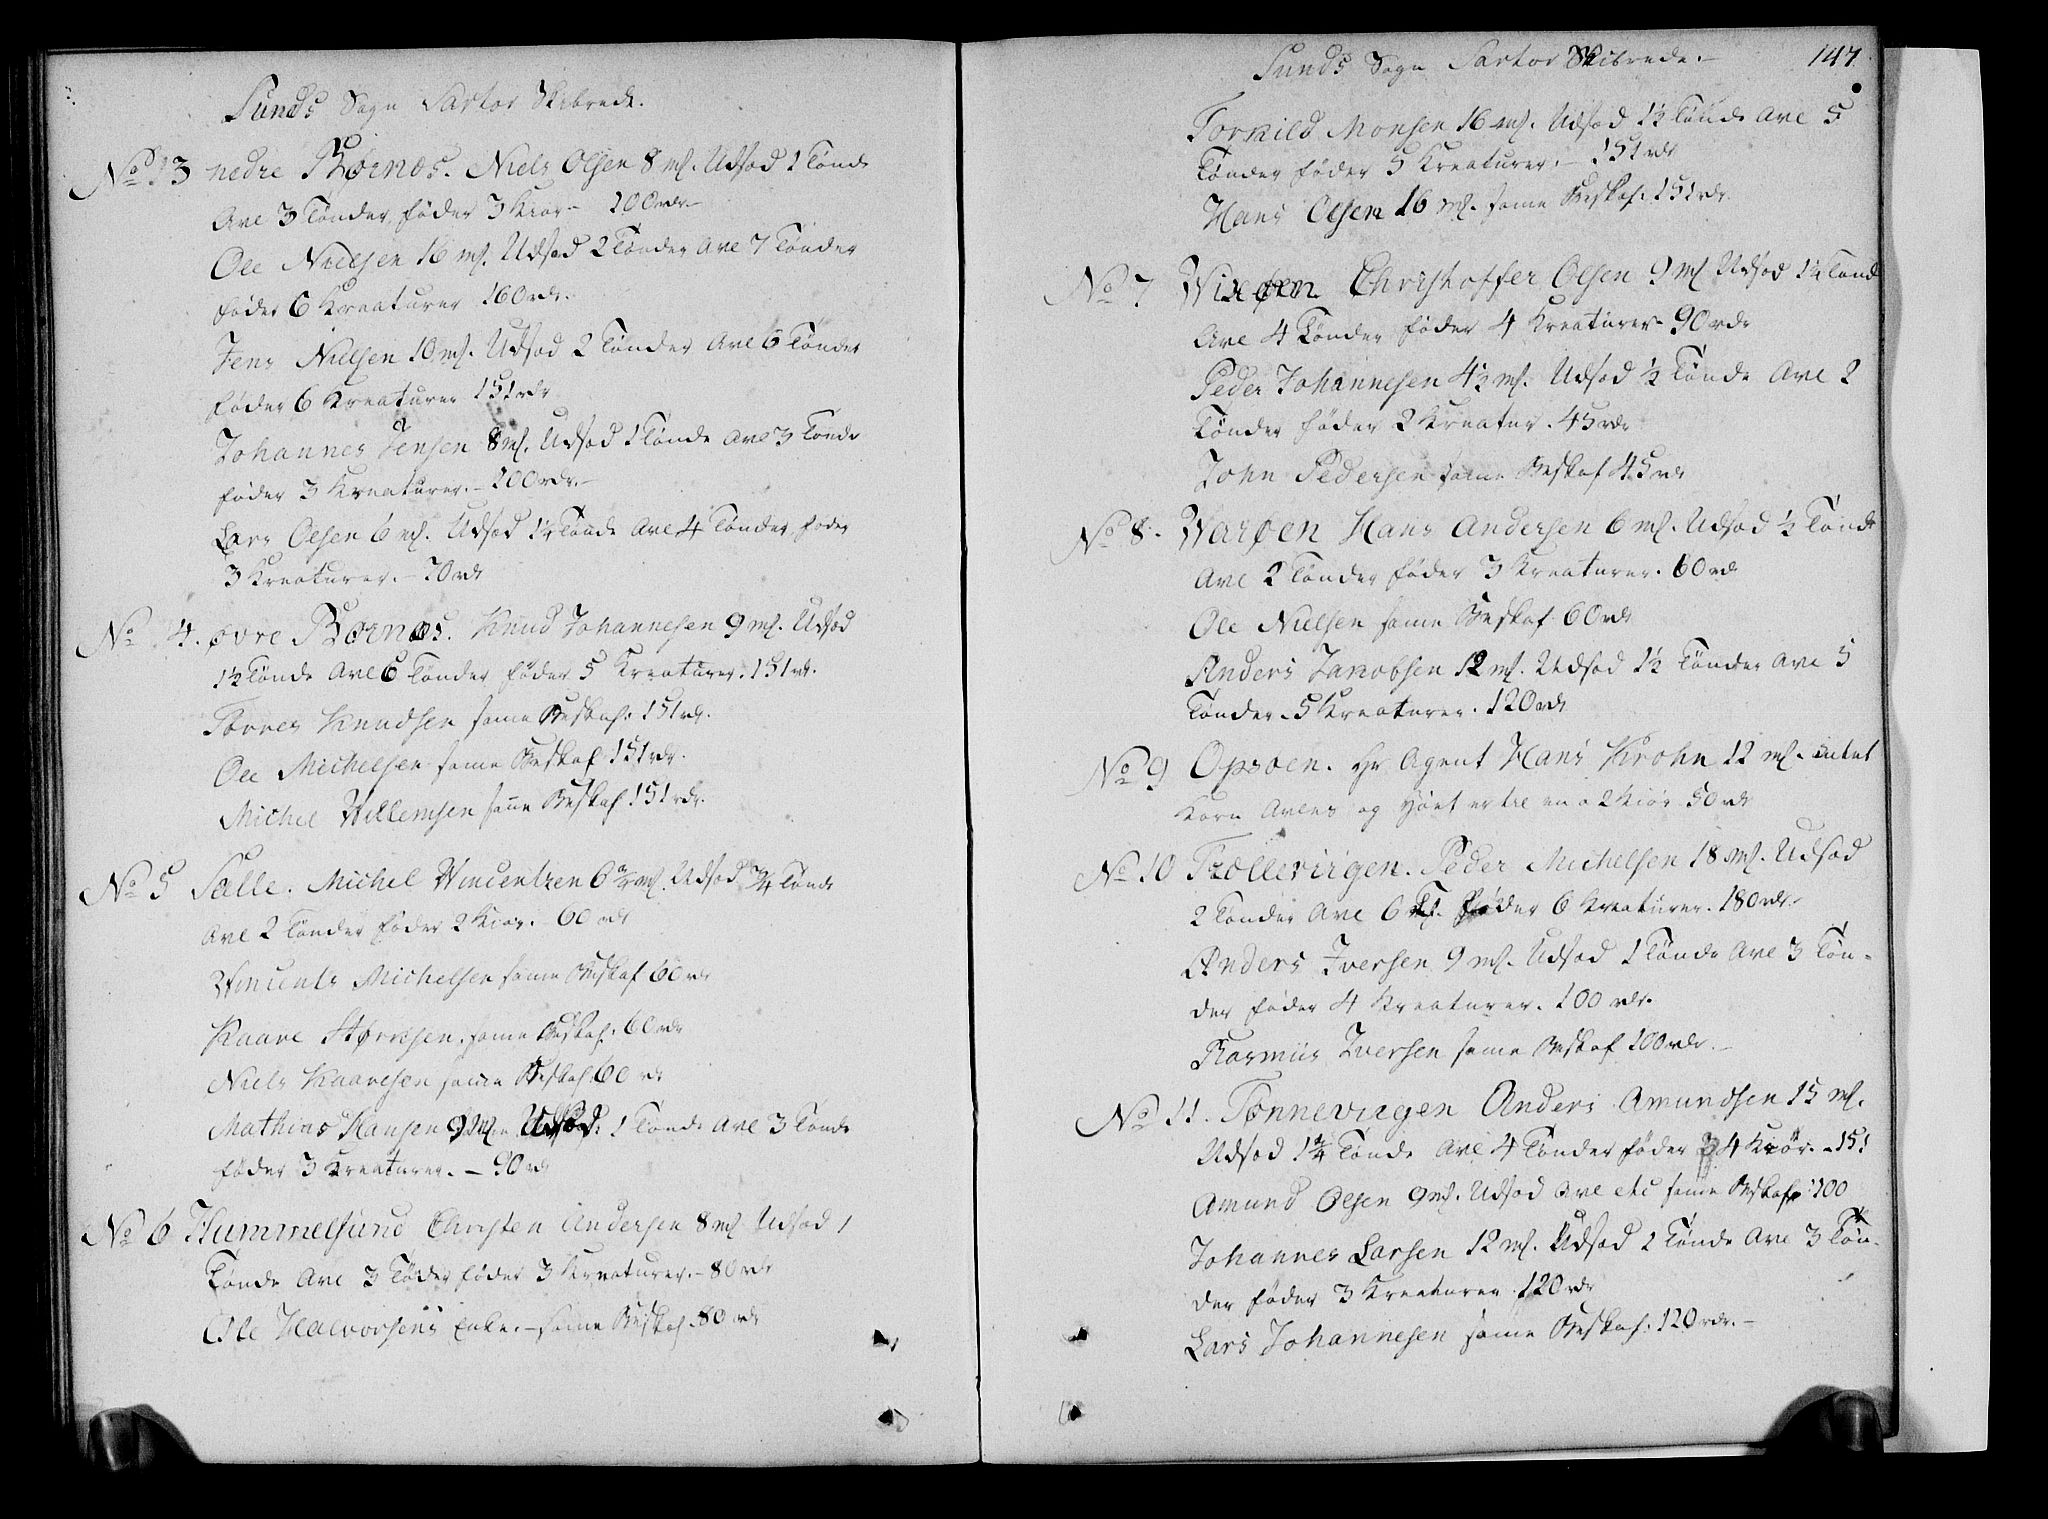 Sunds Sogn Sartor Skibrede.
No 13 nedre Børnæs. Niels Olsen 8 ml. Udsæd 1 Tønde
Avl 3 Tønder, føder 3 Kiør – 100 rdr. –
Ole Nielsen 16 ml. Udsæd 2 Tønder Avl 7 Tønder
føder 6 Kreaturer 160 rdr.
Jens Nielsen 10 ml. Udsæd 2 Tønder Avl 6 Tønder
føder 6 Kreaturer 151 rdr
Johannes Jensen 8 ml. Udsæd 1 Tønde Avl 3 Tønde
føder 3 Kreaturer. – 100 rdr. –
Lars Olsen 6 ml. Udsæd 1¼ Tønde Avl 4 Tønder, føder
3 Kreaturer. – 70 rdr
No 4. øvre Børnæs. Knud Johannesen 9 ml. Udsæd
1½ Tønde Avl 6 Tønder føder 5 Kreaturer. 151 rdr.
Knudsen same Beskaf: 151 rdr.
Ole Michelsen same Beskaf: 151 rdr.
Michel Willemsen same Beskaf 151 rdr.
No 5 Sælle. Michel Wincentzen 6¾ ml. Udsæd ¾ Tønde
Avl 2 Tønder føder 2 Kiør. 60 rdr
Wincents Michelsen same Beskaf 60 rdr
Kaare Størksen, same Beskaf: 60 rdr
Niels Kaaresen same Beskaf: 60 rdr
Mathias Hansen 9 ml Udsæd: 1 Tønde Avl 3 Tønde
føder 3 Kreaturer. – 90 rdr
No 6 Hummelsund Christen Andersen 8 ml Udsæd 1
Tønde Avl 3 Tøder føder 3 Kreaturer. – 80 rdr
Ole Halvorsens Enke. – same Beskaf. 80 rdr
Sunds Sogn Sartor Skibrede. – 147
Torkild Monsen 16 ml. Udsæd 1½ Tønde Avl 5
Tønder føder 5 Kreaturer. – 151 rdr
Hans Olsen 16 ml. same Beskaf: 151 rdr.
No 7 Wixøen. Christoffer Olsen 9 ml Udsæd 1¼ Tønd
Avl 4 Tønder føder 4 Kreaturer 90 rdr
Peder Johannesen 4½ ml. Udsæd ½ Tønde Avl 2
Tønder føder 2 Kreatur. 45 rdr
John Pedersen same Beskaf 45 rdr
No 8. Warøen Hans Andersen 6 ml. Udsæd ½ Tønde
Avl 2 Tønder føder 3 Kreaturer. 60 rdr
Ole Nielsen same Beskaf 60 rdr
Anders Jacobsen 12 ml. Udsæd 1½ Tønder Avl 5
Tønder. 5 Kreaturer. 120 rdr
No 9 Opsøen. Hr Agent Hans Krohn 12 ml. intet
Korn Avles og Høet er til en a 2 Kiør 50 rdr
No 10 Trolleviigen. Peder Michelsen 18 ml. Udsæd
2 Tønder Avl 6 T. føder 6 Kreaturer. 180 rdr.
Anders Iversen 9 ml. Udsæd 1 Tønde Avl 3 Tøn-
der føder 4 Kreaturer. 100 rdr.
Rasmus Iversen same Beskaf 100 rdr. –
No 11. Tønnevigen Anders Amundsen 15 ml.
Udsæd 1¾ Tønde Avl 4 Tønder føder 4 Kiør. – 151
Amund Olsen 9 ml. Udsæd Avl etc same Beskaf: 100
Johannes Larsen 12 ml. Udsæd 1 Tønde Avl 3 Tøn-
der føder 3 Kreaturer 120 rdr
Lars Johannesen same Beskaf: 120 rdr. –